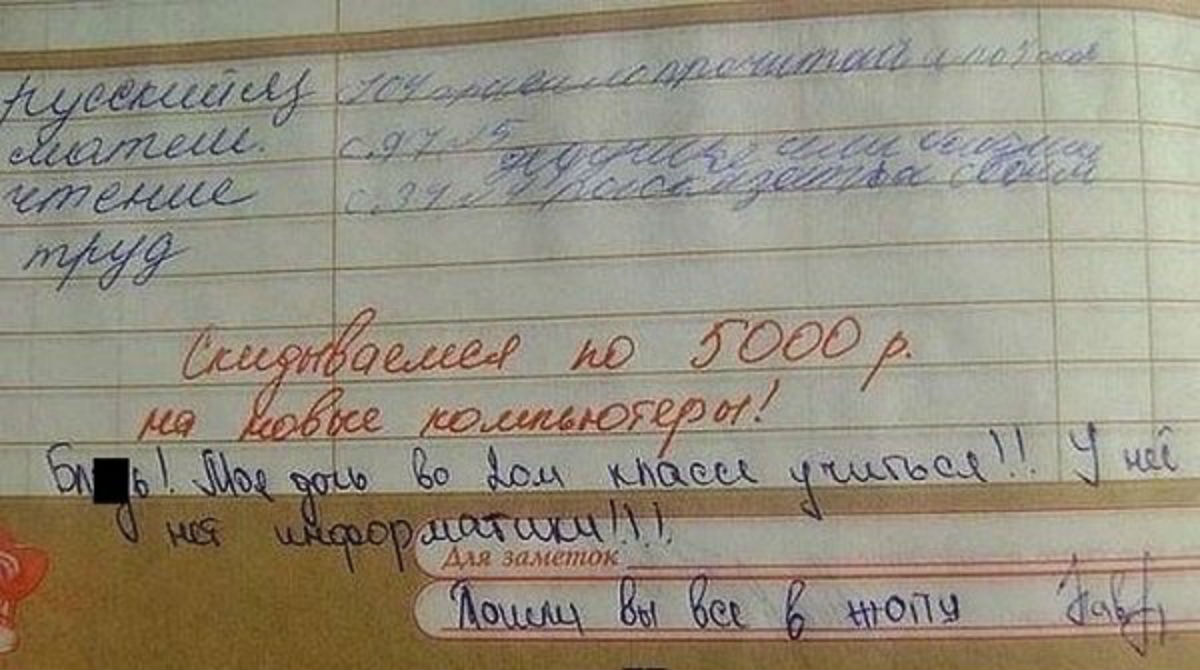 русский яз
104 правило прочитай и
матем.
с. 97 №5
чтение
с. 34
труд
Скидываемся по 5000 р.
на новые компьютеры!
Бл ь! Моя дочь во 2ом классе учиться!!! У неё
нет информатики!!!!
Для заметок
Пошли вы все в жопу